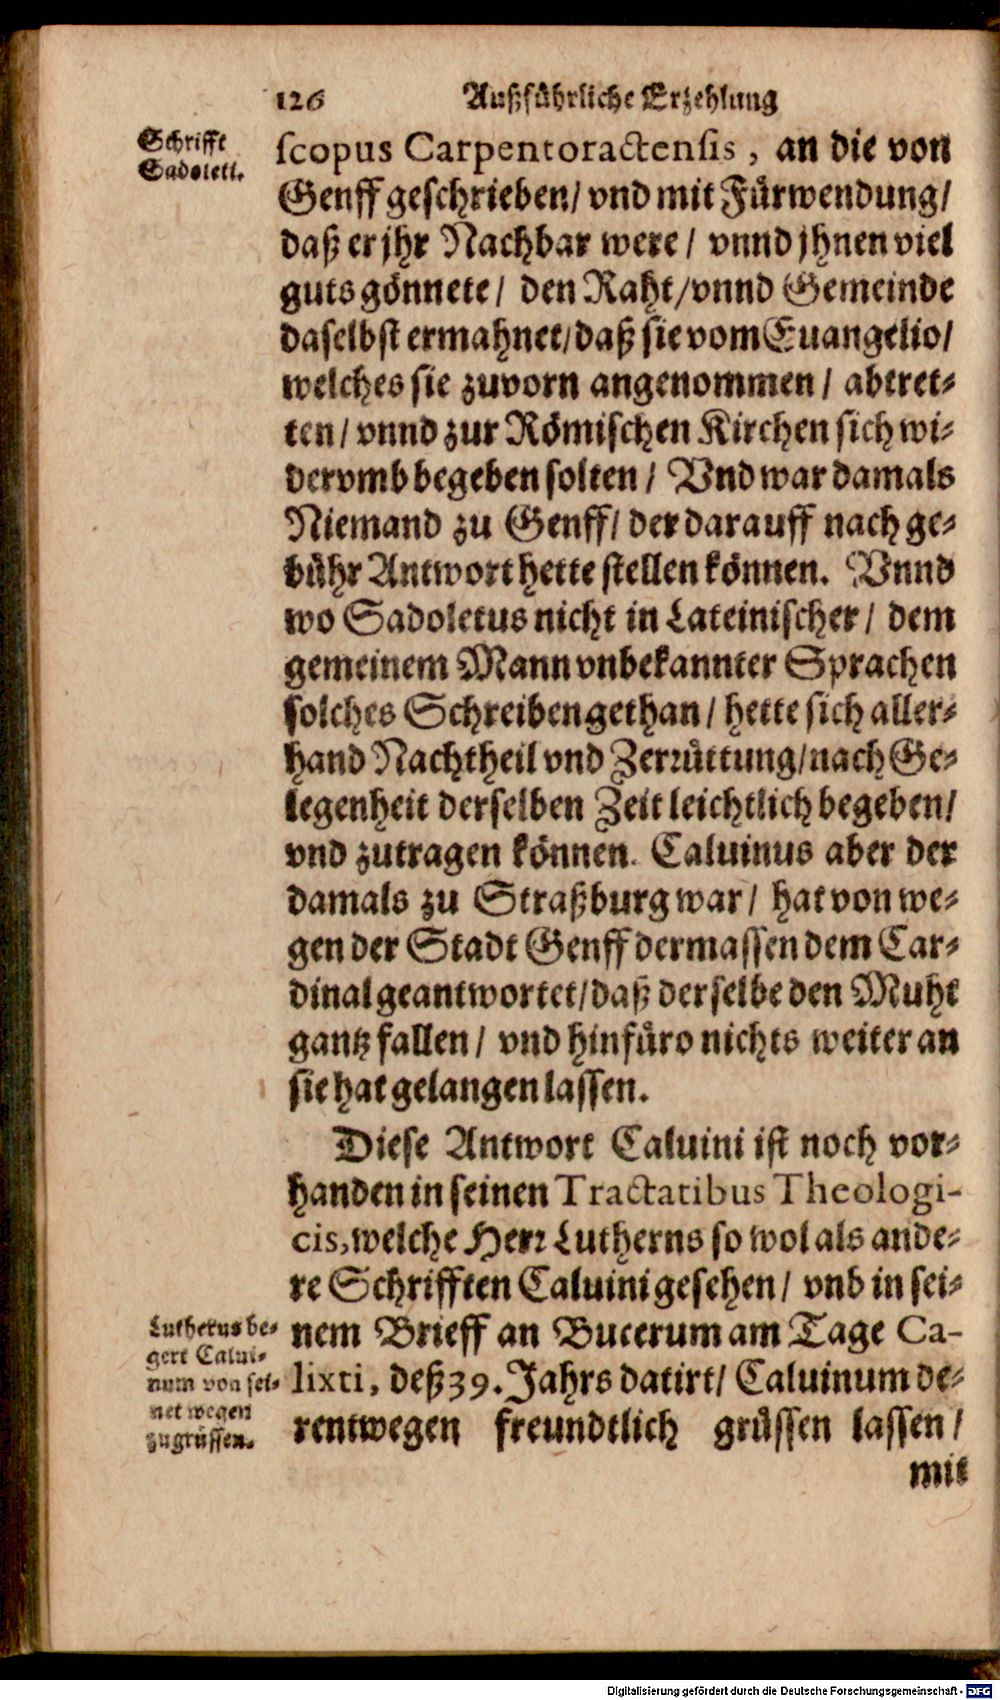 126 Außführliche Erzehlung
Schrifft
Sadoleti.
scopus Carpentoractensis, an die von
Genff geschrieben/ vnd mit Fürwendung/
daß er jhr Nachbar were/ vnnd jhnen viel
guts gönnete/ den Raht/vnnd Gemeinde
daselbst ermahnet/daß sie vom Euangelio/
welches sie zuvorn angenommen/ abtret-
ten/ vnnd zur Römischen Kirchen sich wi-
dervmb begeben solten/ Vnd war damals
Niemand zu Genff/ der darauff nach ge-
bühr Antwort hette stellen können. Vnnd
wo Sadoletus nicht in Lateinischer/ dem
gemeinem Mann vnbekannter Sprachen
solches Schreiben gethan/ hette sich aller-
hand Nachtheil vnd Zerrüttung/nach Ge-
legenheit derselben Zeit leichtlich begeben/
vnd zutragen können. Caluinus aber der
damals zu Straßburg war/ hat von we-
gen der Stadt Genff dermassen dem Car-
dinal geantwortet/daß derselbe den Muht
gantz fallen/ vnd hinfüro nichts weiter an
sie hat gelangen lassen.
Diese Antwort Caluini ist noch vor-
handen in seinen Tractatibus Theologi-
cis, welche Herr Lutherns so wol als ande-
re Schrifften Caluini gesehen/ vnd in sei-
nem Brieff an Bucerum am Tage Ca-
lixti, deß 39. Jahrs datirt/ Caluinum de-
rentwegen freundtlich grüssen lassen/
Lutherus be-
gert Calui-
num von sei-
net wegen
zugrüssen.
mit
Digitalisierung gefördert durch die Deutsche Forschungsgemeinschaft - DFG